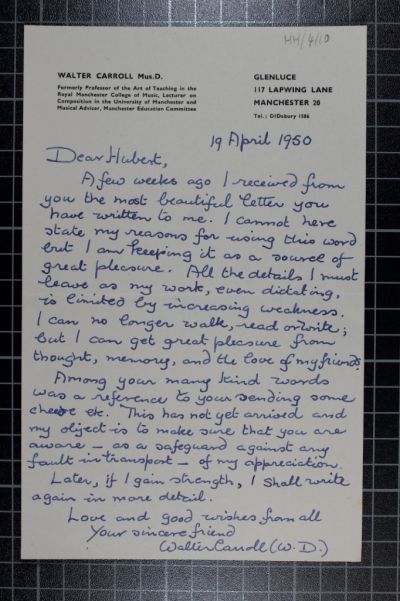 HH/4/10
WALTER CARROLL Mus.D.
Formerly Professor of the Art of Teaching in the
Royal Manchester College of Music, Lecturer on
Composition in the University of Manchester and
Musical Advisor, Manchester Education Committee
GLENLUCE
117 LAPWING LANE
MANCHESTER 20
Tel.: DIDsbury 1506
19 April 1950
Dear Hubert,
A few weeks ago I received from
you the most beautiful letter you
have written to me. I cannot here
state my reasons for using this word
but I am keeping it as a source of
great pleasure. All the details I must
leave as my work, even dictating,
is limited by increasing weakness.
I can no longer walk, read or write;
but I can get great pleasure from
thought, memory, and the love of my friends.
Among your many kind words
was a reference to your sending some
cheese etc. This has not yet arrived and
my object is to make sure that you are
aware – as a safeguard against any
fault in transport – of my appreciation.
Later, if I gain strength, I shall write
again in more detail.
Love and good wishes from all
Your sincere friend
Walter Carroll (W. D.)